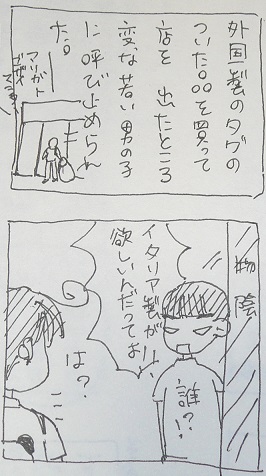 外国製のタグの
ついた品を買って
店を出たところ
変な若い男の子
に呼び止められ
た。
マリガト
ゴザイ
マシター
物陰
イタリア製が
欲しいんだってお!!
誰?!
は?
ここ